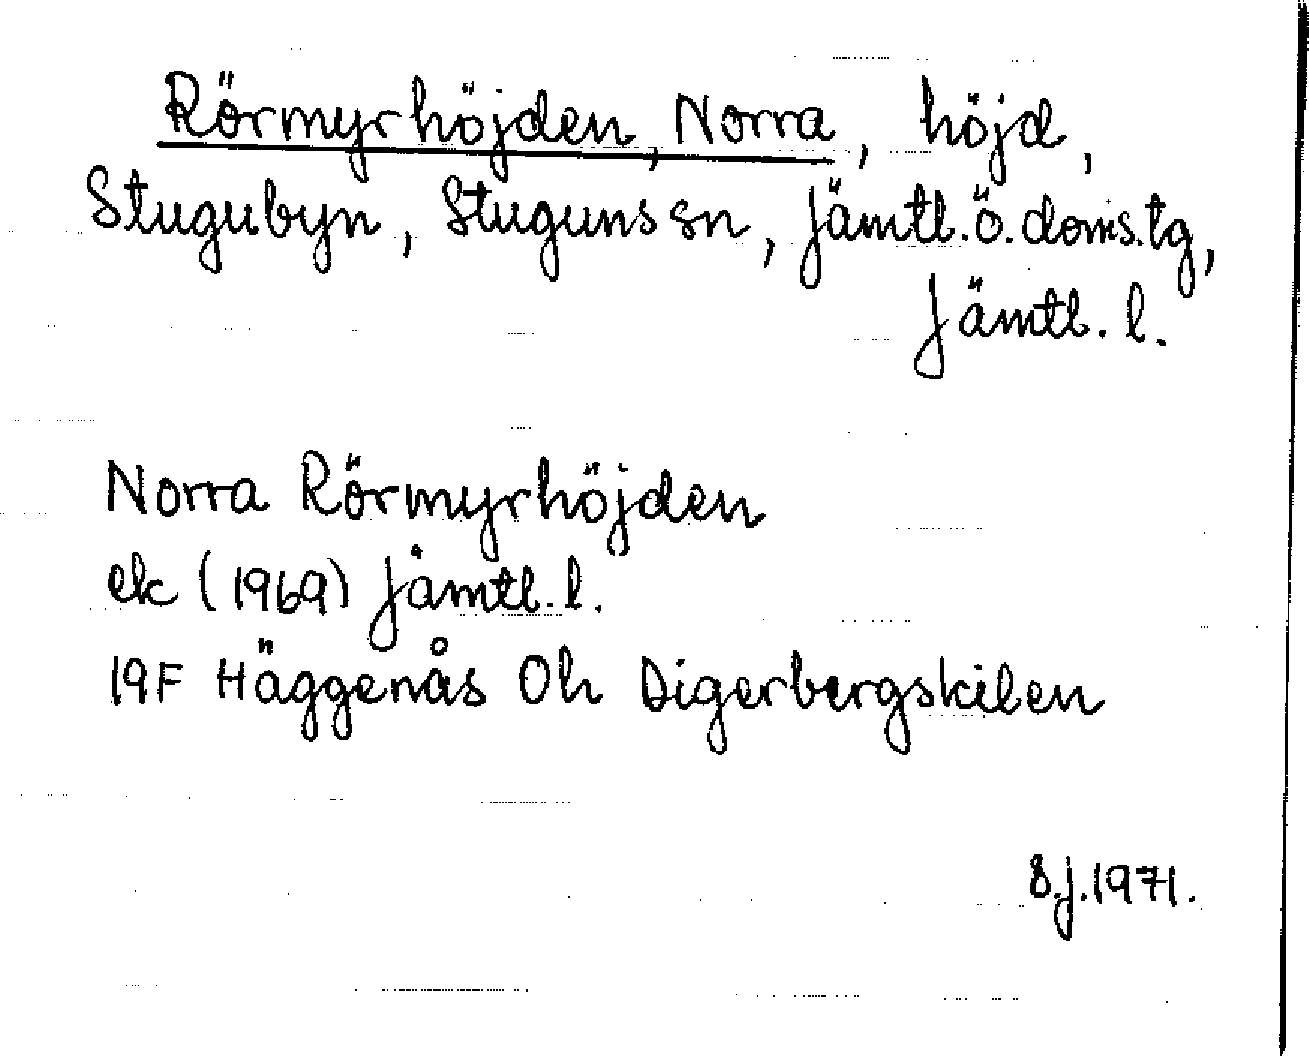 Rörmyrhöjden, Norra, höjd,
Stugubyn, Stuguns sn, Jämtl.ö.doms.tg,
Jämtl. l.
Norra Rörmyrhöjden
ek (1969) Jämtl. l.
19F Häggenås 0h Digerbergskilen
S.J. 1971.